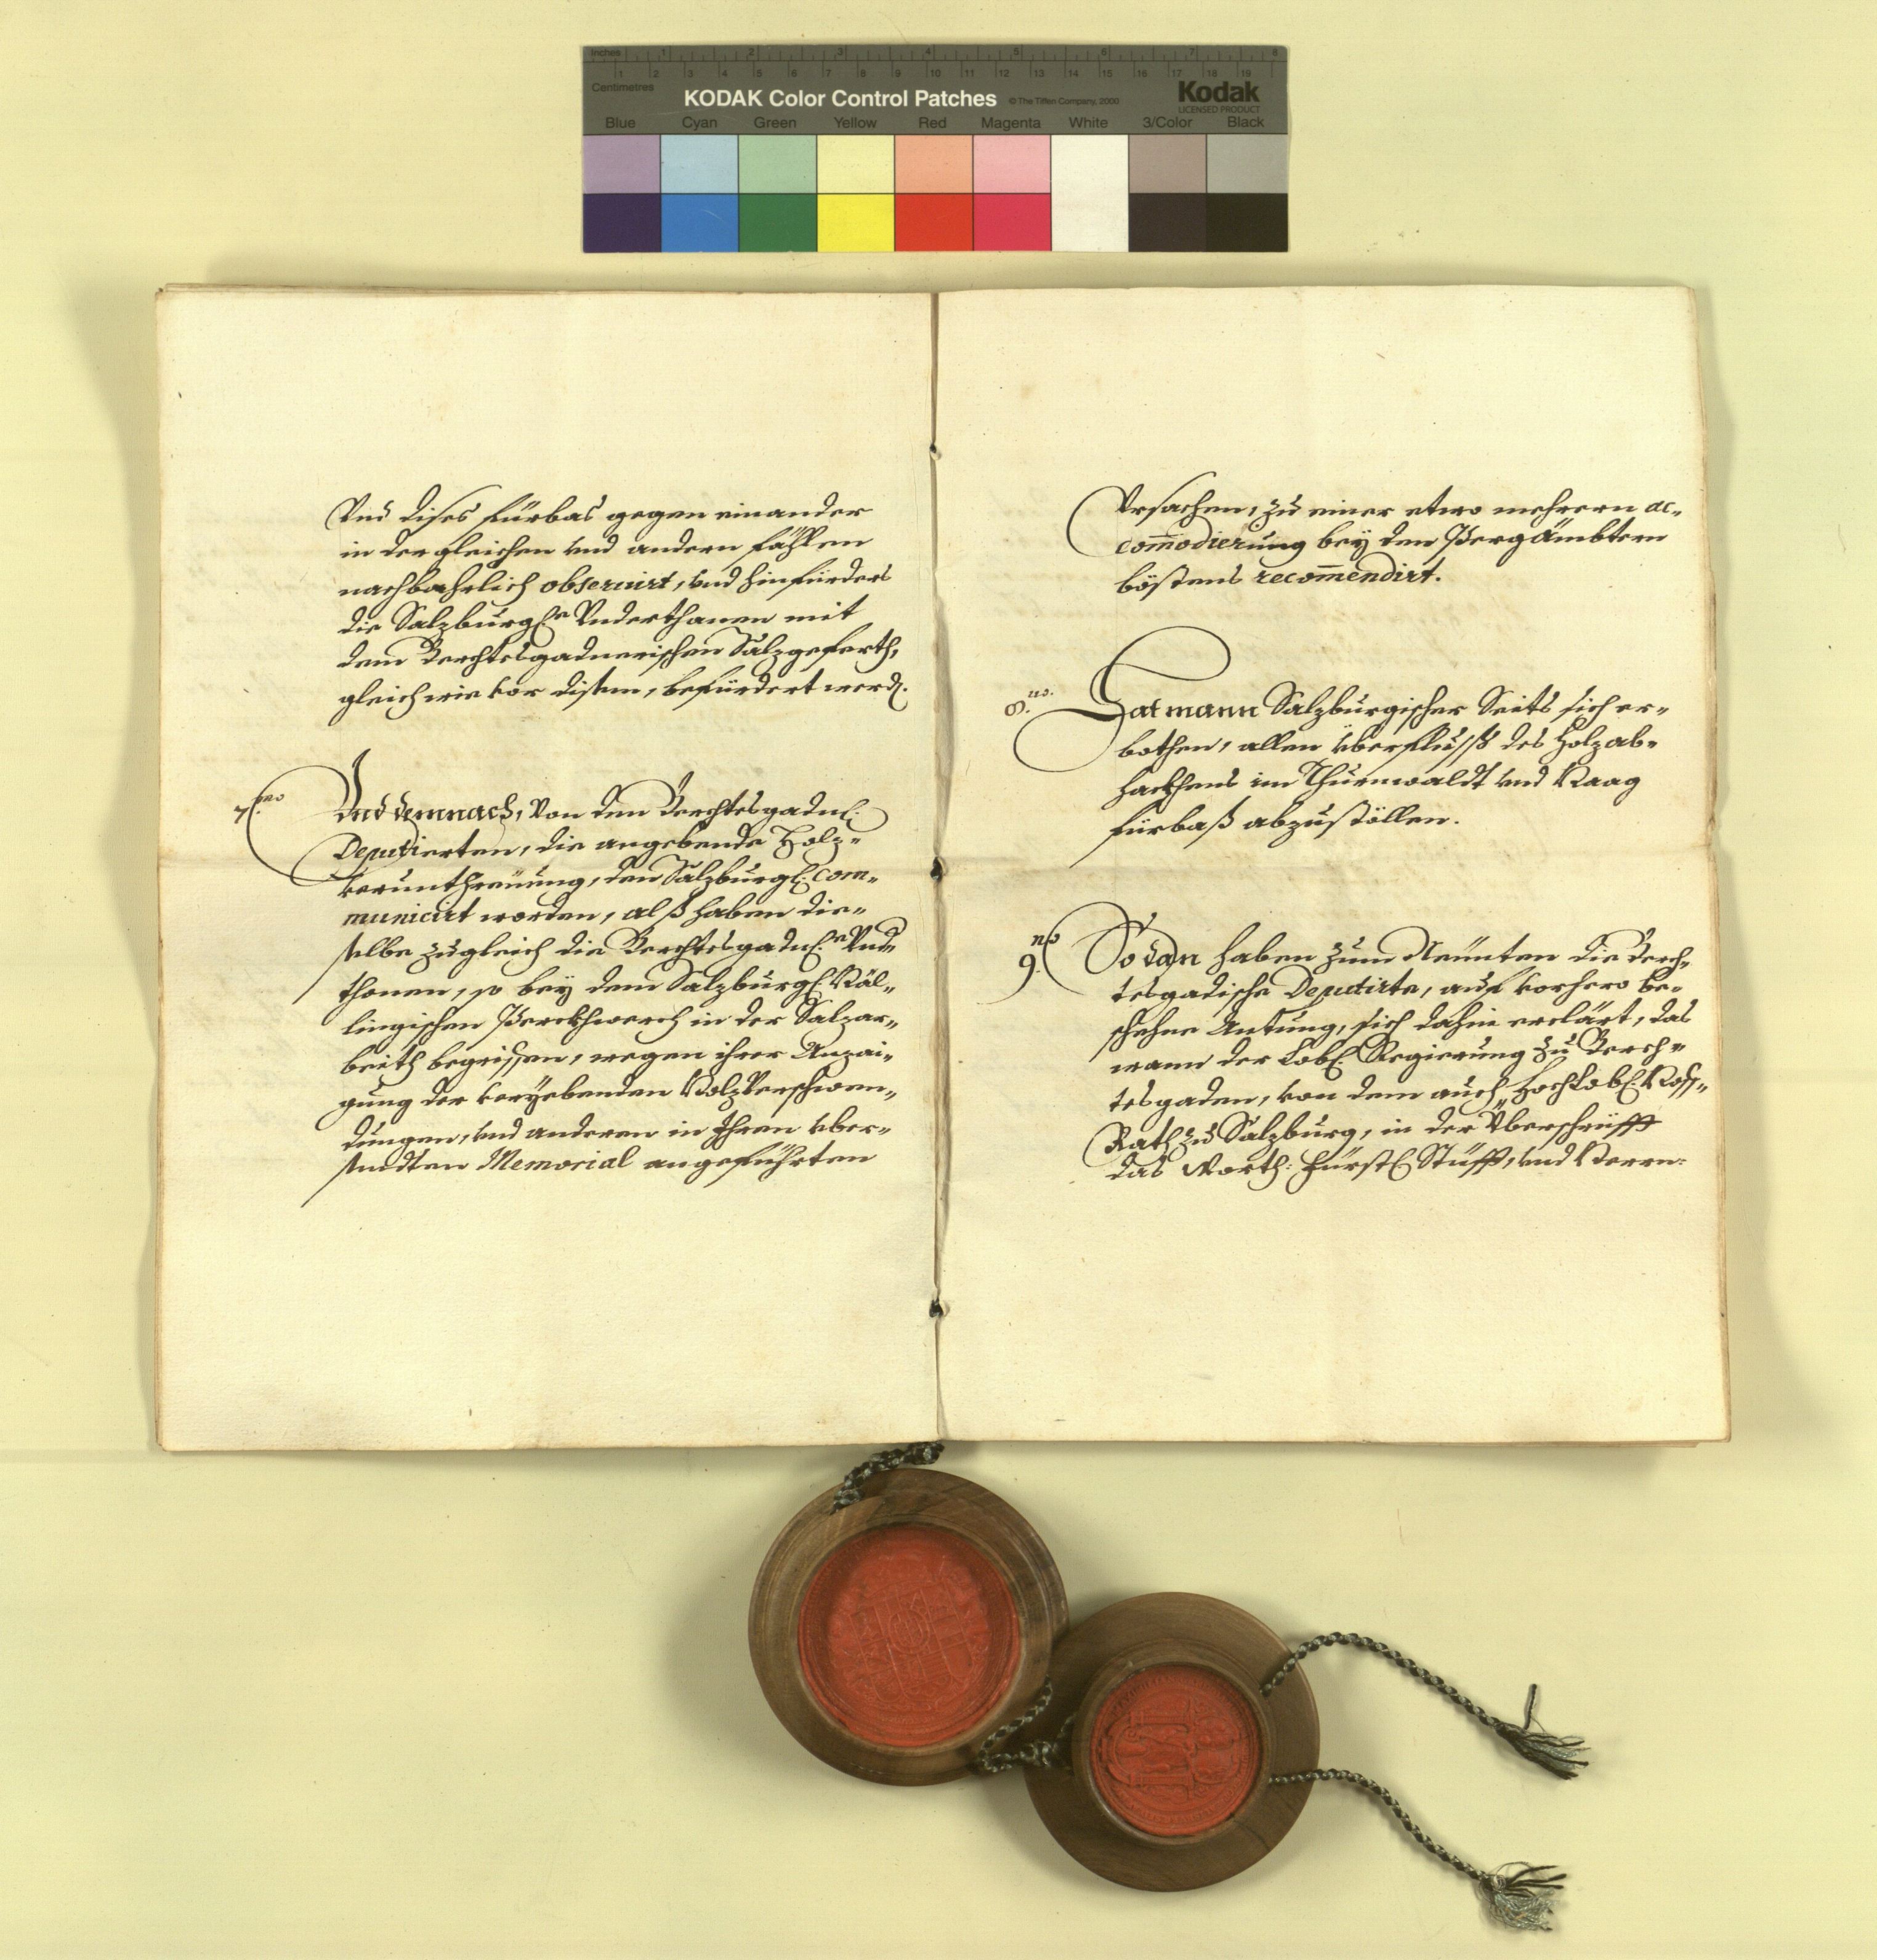 Inches 1 2 3 4 5 6 7 8
Centimetres 1 2 3 4 5 6 7 8 9 10 11 12 13 14 15 16 17 18 19
KODAK Color Control Patches © The Tiffen Company, 2000 Kodak
LICENSED PRODUCT
Blue Cyan Green Yellow Red Magenta White 3/Color Black
Vnd dises fürbas gegen einander
in dergleichen vnd andern fählen
nachbahrlich obseruirt, vnd hinfürders
die Salzburg:e Vnderthanen mit
dem Berchtesgadnerischen Salzgeferth,
gleich wie vor disem, befürdert werd.
7.mo Vnd demnach, von den Berchtesgadnl:
Deputierten, die angebende Holz-
veruntreüung, den Salzburgl: com-
municirt worden, alß haben die-
selbe zugleich die Berchtesgadnl:e Vnd
thonen, so bey dem Salzburgl: Häl-
lingischen Perckhwerch in der Salzar-
beith begriffen, wegen ihrer Anzai-
gung der vorgebenden Holzverschwen-
dungen, vnd anderen in Ihrem über-
sandten Memorial angeführten
Vrsachen, zu einer etwo mehrern ac-
com̄odierung bey den Pergämbtern
böstens recom̄endirt.
8.uo. Hat mann Salzburgischer Seits sich er-
bothen, allen überfluß des Holzab-
hackhens im Thurnwaldt vnd Raag
fürbaß abzustöllen.
9.no Sodan haben zum Neünten die Berch-
tesgadische Deputirte, auf vorhero be-
schehne Antung, sich dahin erclärt, das
wann der Lobl: Regierung zu Berch-
tesgaden, von dem auch Hochlobl: Hoff-
Rath zu Salzburg, in der Überschrüfft
das Worth: Fürstl: Stüfft, vnd Herrn: